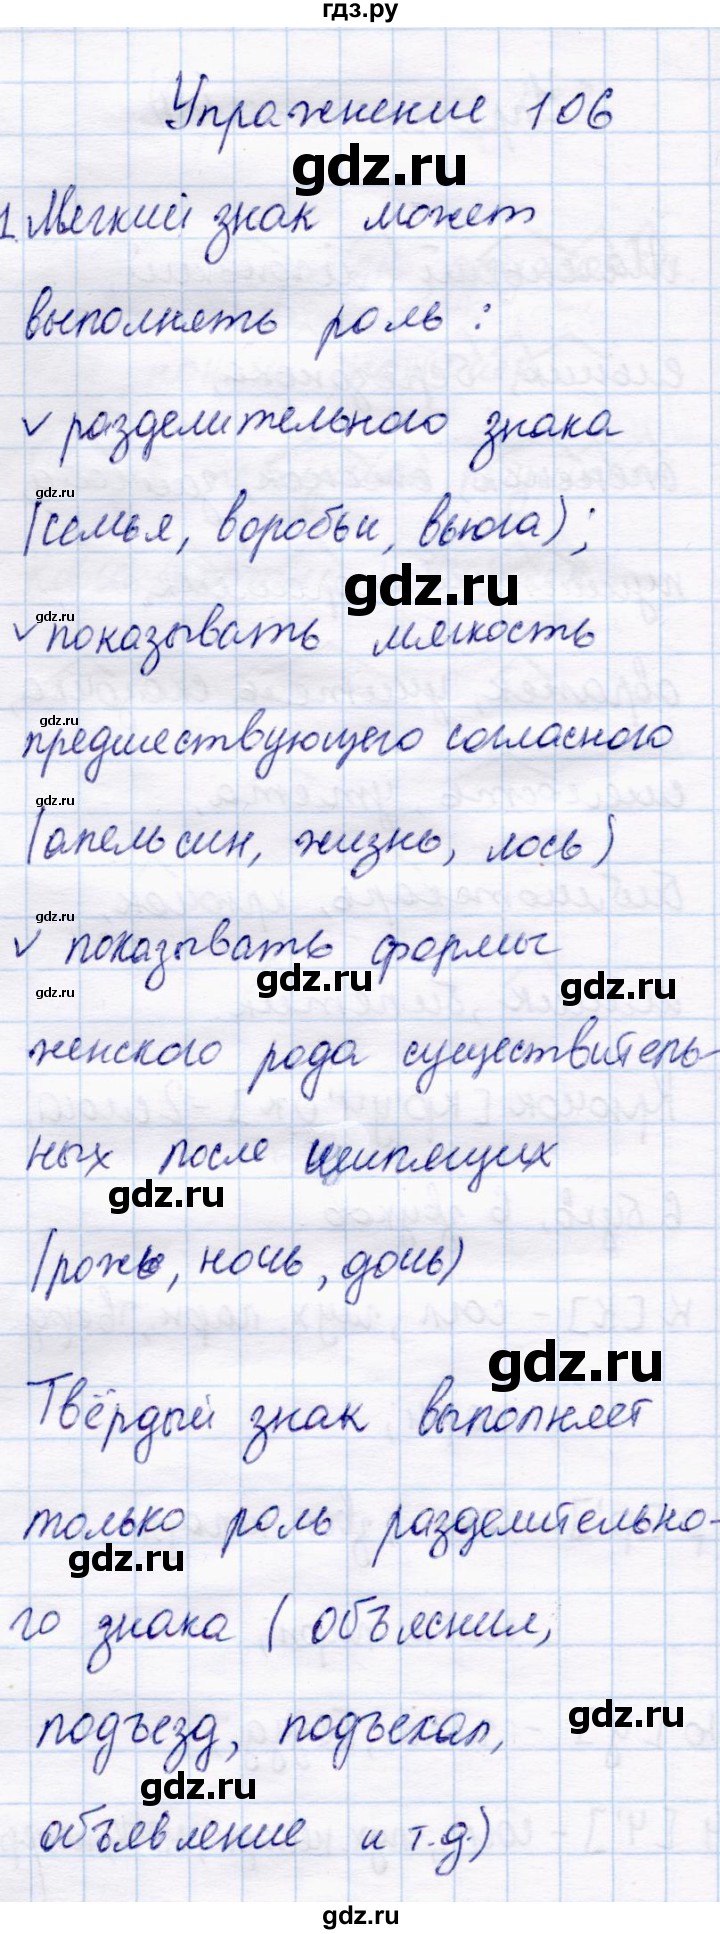 гдз.ру
Упражнение 106
gdz.ru
1. Мягкий знак может
выполнять роль :
✓ разделительного знака
gdz.ru
(семья, воробьи, вьюга);
gdz.ru
gdz.ru
✓ показывать мягкость
gdz.ru
предшествующего согласного
gdz.ru
(апельсин, жизнь, лось)
gdz.ru
✓ показывать формы
gdz.ru
gdz.ru
gdz.ru
женского рода существитель-
ных после шипящих
gdz.ru
(рожь, ночь, дочь)
gdz.ru
Твёрдый знак выполняет
только роль разделительно-
gdz.ru
го знака (объяснил,
gdz.ru
подъезд, подъехал,
gdz.ru
объявление и т.д.)
gdz.ru